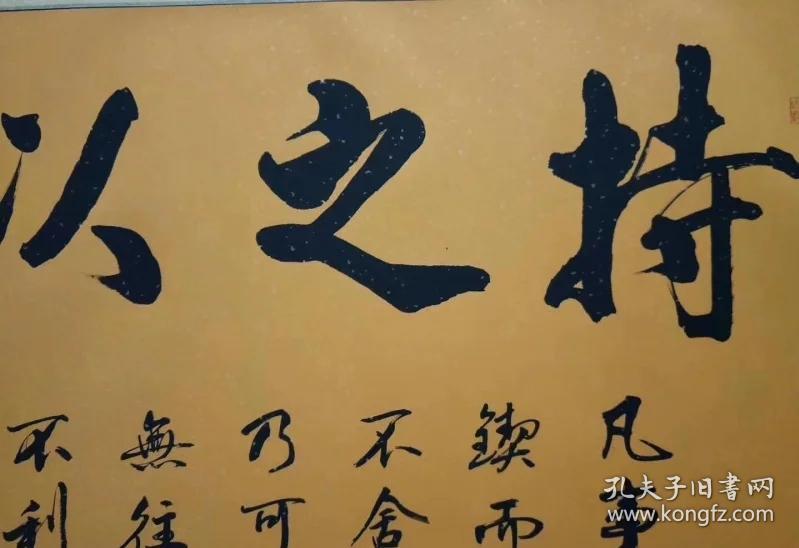 持之以
凡事
鍥而
不舍
乃可
無往
不利
孔夫子旧书网
www.kongfz.com